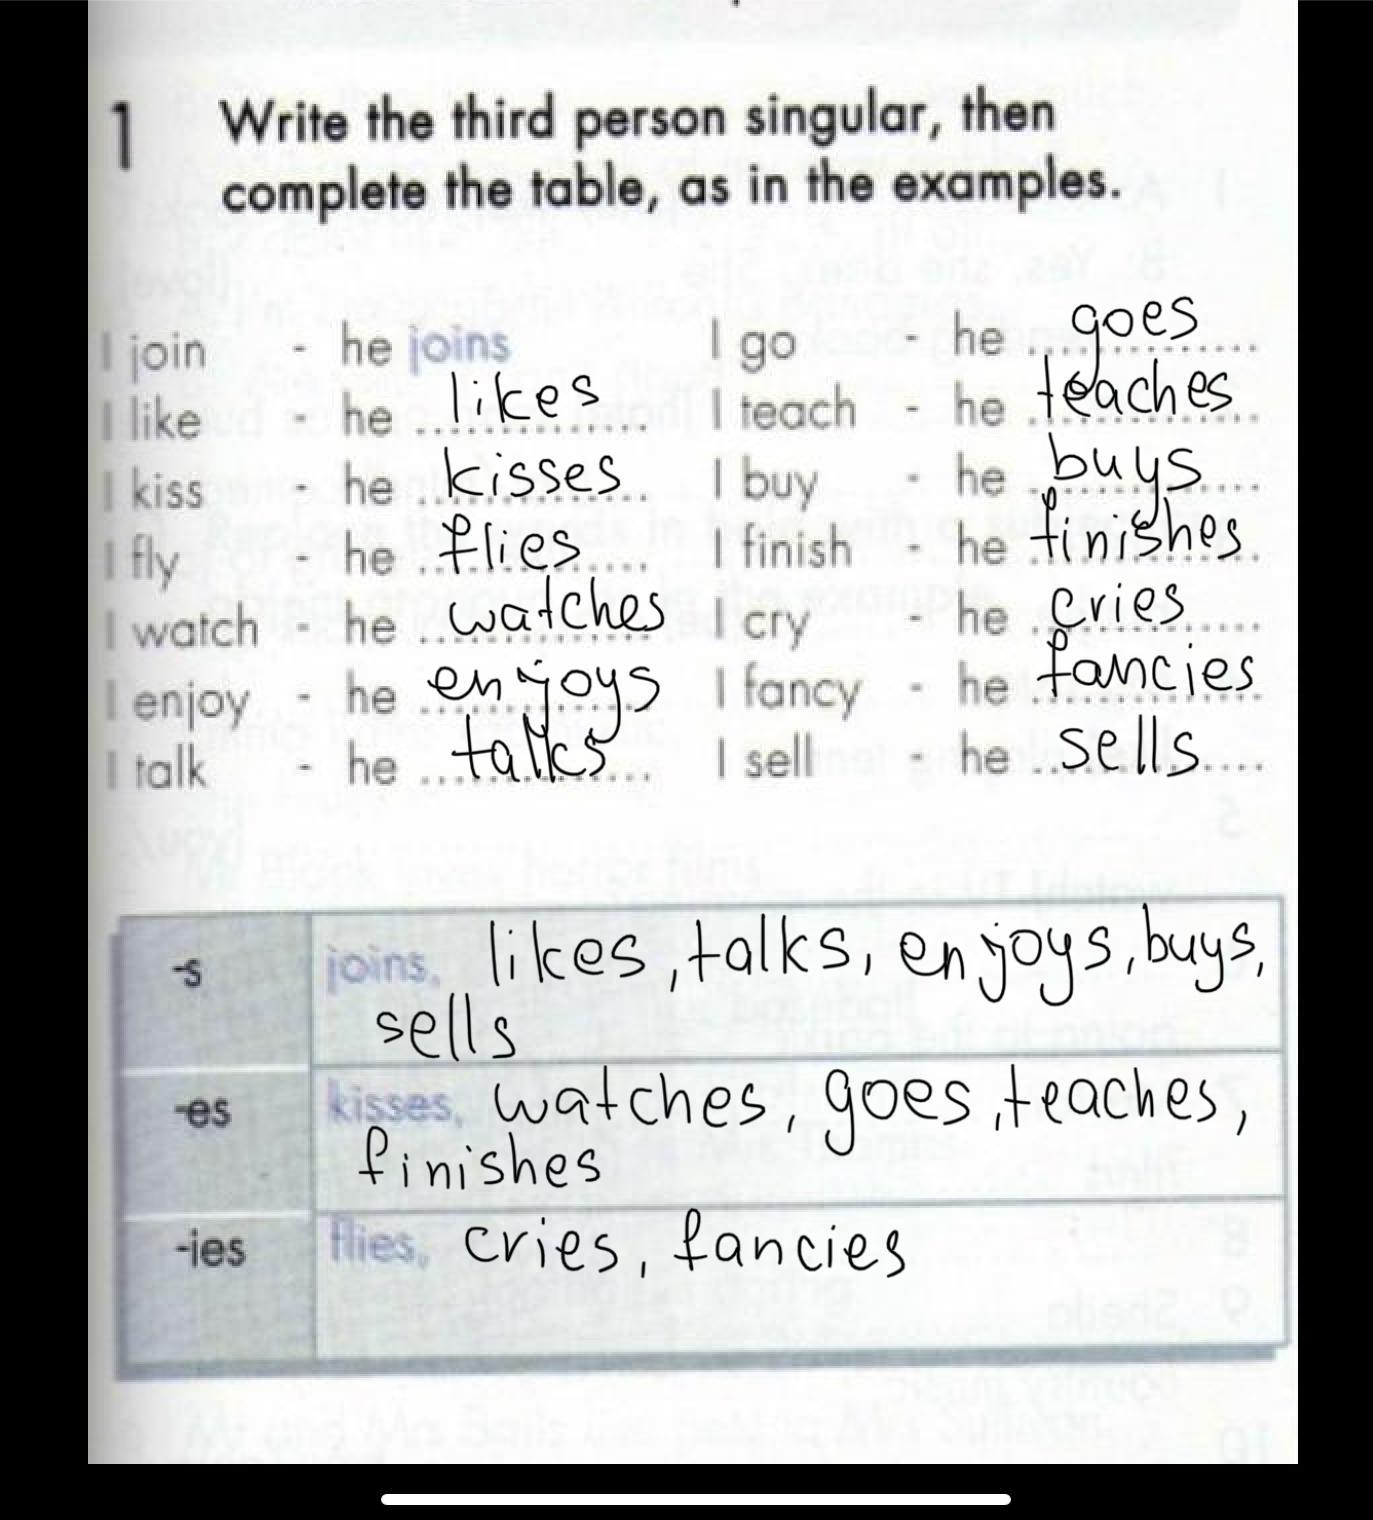 1 Write the third person singular, then
complete the table, as in the examples.
I join - he joins
I like - he likes
I kiss - he kisses
I fly - he flies
I watch - he watches
I enjoy - he enjoys
I talk - he talks
I go - he goes
I teach - he teaches
I buy - he buys
I finish - he finishes
I cry - he cries
I fancy - he fancies
I sell - he sells
-s joins, likes, talks, enjoys, buys,
sells
-es kisses, watches, goes, teaches,
finishes
-ies flies, cries, fancies